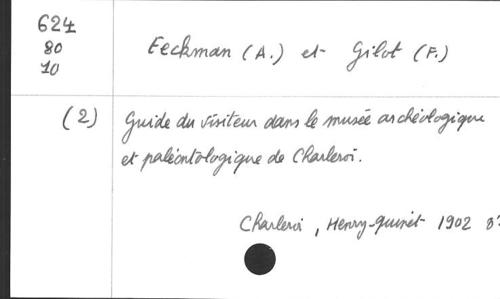 624
80
10
Eeckman (A.) et Gilot (F.)
(2) Guide du visiteur dans le musée archéologique
et paléontologique de Charleroi.
Charleroi, Henry-Quinet 1902 8°